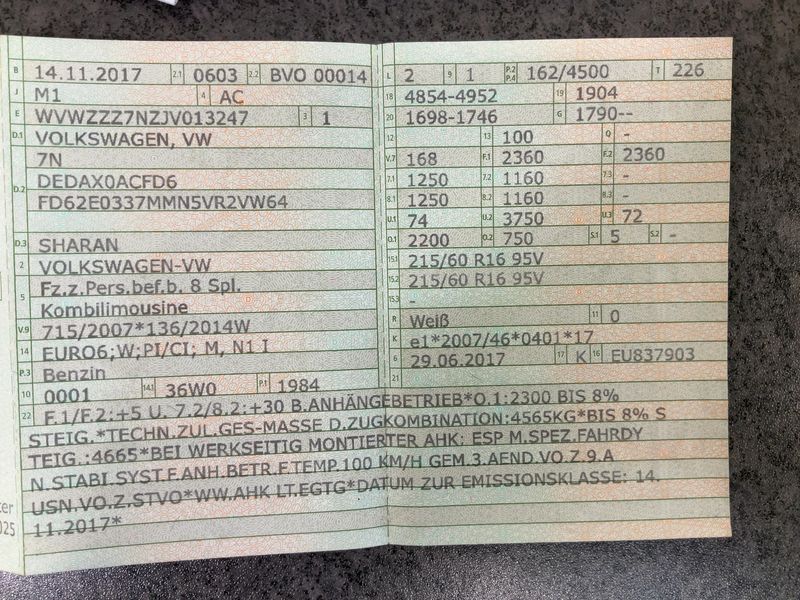 B 14.11.2017 2.1 0603 2.2 BVO 00014
J M1 4 AC
E WVWZZZ7NZJV013247 3 1
D.1 VOLKSWAGEN, VW
7N
D.2 DEDAX0ACFD6
FD62E0337MMN5VR2VW64
D.3 SHARAN
2 VOLKSWAGEN-VW
5 Fz.z.Pers.bef.b. 8 Spl.
Kombilimousine
V.9 715/2007*136/2014W
14 EURO6;W;PI/CI; M, N1 I
P.3 Benzin
10 0001 14.1 36W0 P.1 1984
L 2 9 1 P.2 P.4 162/4500 T 226
18 4854-4952 19 1904
20 1698-1746 G 1790--
12 13 100 Q -
V.7 168 F.1 2360 F.2 2360
7.1 1250 7.2 1160 7.3 -
8.1 1250 8.2 1160 8.3 -
U.1 74 U.2 3750 U.3 72
O.1 2200 O.2 750 S.1 5 S.2 -
15.1 215/60 R16 95V
15.2 215/60 R16 95V
15.3 -
R Weiß 11 0
K e1*2007/46*0401*17
6 29.06.2017 17 K 16 EU837903
21
22 F.1/F.2:+5 U. 7.2/8.2:+30 B.ANHÄNGEBETRIEB*O.1:2300 BIS 8%
STEIG.*TECHN.ZUL.GES-MASSE D.ZUGKOMBINATION:4565KG*BIS 8% S
TEIG.:4665*BEI WERKSEITIG MONTIERTER AHK: ESP M.SPEZ.FAHRDY
N.STABI.SYST.F.ANH.BETR.F.TEMP.100 KM/H GEM.3.AEND.VO.Z.9.A
USN.VO.Z.STVO*WW.AHK LT.EGTG*DATUM ZUR EMISSIONSKLASSE: 14.
11.2017*